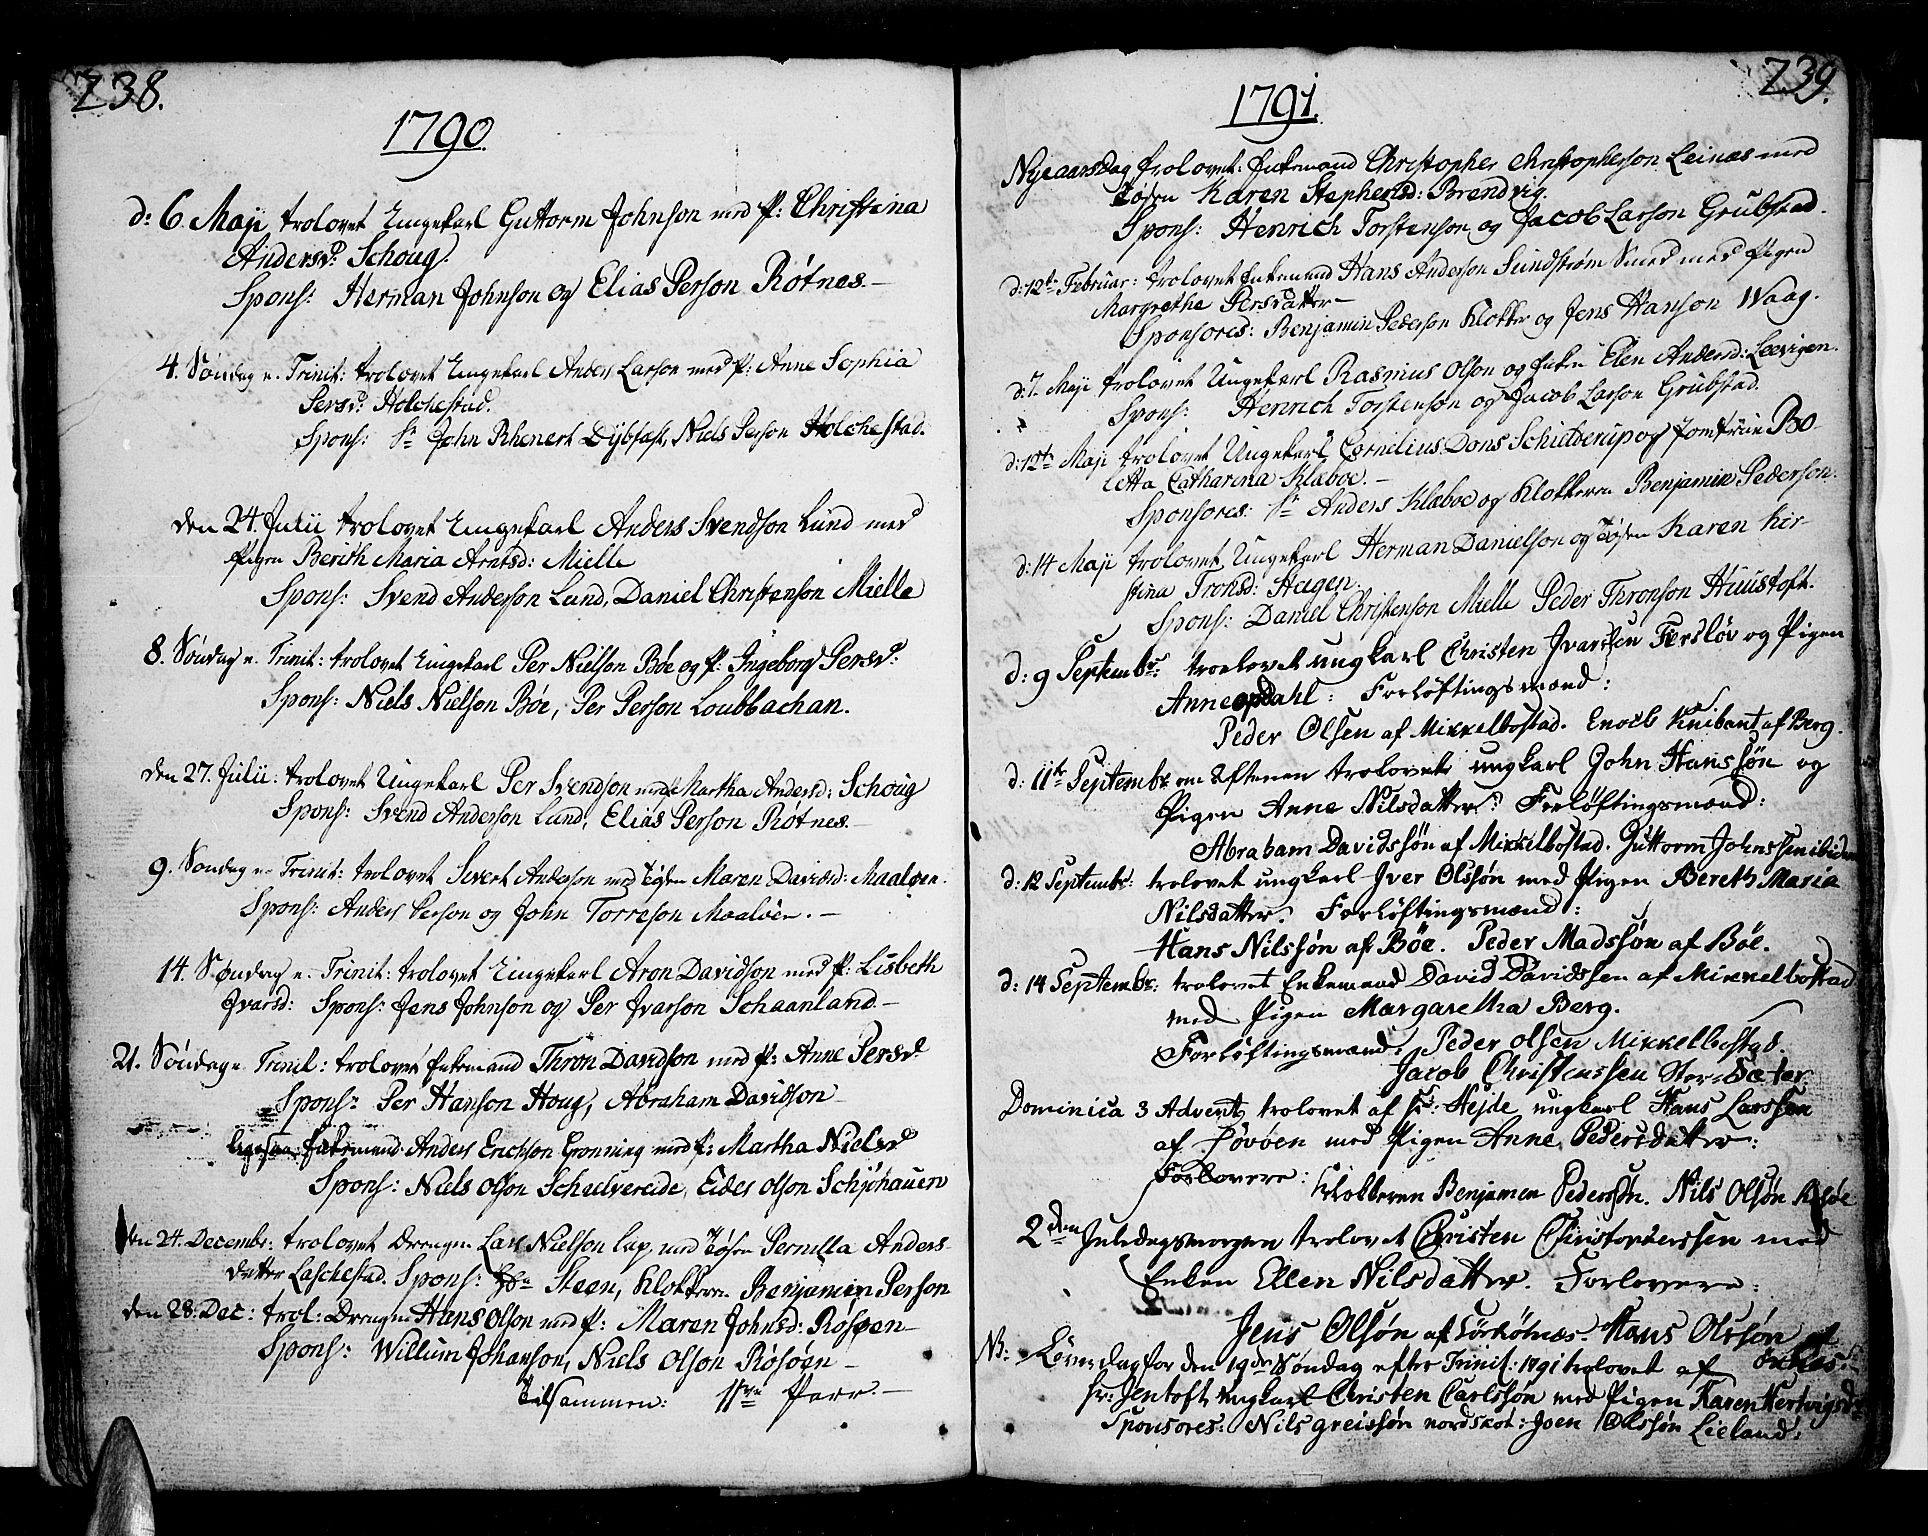 238.
1790
d: 6. Maji trolovet Ungekarl Guttorm Johnson med P: Christina
Andersd: Schoug.
Spons: Herman Johnson og Elias Person Røtnes.
4. Søndag n. Trinit: trolovet Ungekarl Anders Larson med P: Anne Sophia
Persd: Holchestad.
Spons: Sr John Rhenert Dybfæst, Niels Person Holchestad.
den 24 Julii trolovet Ungekarl Anders Svendson Lund med
Pigen Berith Maria Arntsd: Mielle
Spons: Svend Anderson Lund, Daniel Christenson Mielle
8. Søndag n. Trinit: trolovet Ungekarl Per Nielson Bøe og P: Ingeborg Persd:
Spons: Niels Nielson Bøe, Per Person Loubbachan.
den 27. Julii: trolovet Ungekarl Per Svendson med Martha Andersd: Schoug
Spons: Svend Anderson Lund, Elias Person Røtnes.
9. Søndag n. Trinit: trolovet Sivert Anderson med Tøsen Maren Davidsd: Maaløen.
Spons: Anders Person og John Torreson Maaløen.
14. Søndag n. Trinit: trolovet Ungekarl Aron Davidson med P: Lisbeth
Ivarsd: Spons: Jens Johnson og Per Ivarson Schaanland.
21. Søndag n. Trinit: trolovet Enkemand Thron Davidson med P: Anne Persd:
Spons: Per Hanson Houg, Abraham Davidson
ligesaa Enkemand Anders Erichson Grønning med P: Martha Nielsd
Spons: Niels Olson Schulvereide, Eides Olson Schjøhauen
den 24. Decembr: trolovet Drengen Lars Nielson Lap, med Tøsen Pernilla Anders
datter Laschestad. Spons: Steen, Klokkeren Benjamin Person
den 28. Dec: trol: Drengen Hans Olson med P: Maren Johnsd: Røsøen
Spons: Willum Johanson, Niels Olson Røsøen
Tilsammen: 11ve Parr.
239.
1791.
Nyeaarsdag trolovet: Enkemand Christopher Christopherson Leinæs med
Tøsen Karen Stephensd: Brandvig.
Spons: Henrich Torstenson og Jacob Larson Grubstad.
d: 12te Februar: trolovet Enkemand Hans Anderson Sundstrøm Smed med Pigen
Margrethe Persdatter
Sponsores: Benjamin Pederson Klokker og Jens Hanson Waag.
d: 7. Maji trolovet Ungekarl Rasmus Olson og Enken Elen Andersd: Leevigen.
Spons: Henrich Torstenson og Jacob Larson Grubstad.
d: 12te Maji trolovet Ungekarl Cornelius Dons Schielderup og Jomfrue Bo-
letta Catharina Klæboe.
Sponsores: Sr Anders Klæboe og Klokkeren Benjamin Pederson.
d: 14 Maji trolovet Ungekarl Herman Danielson og Tøsen Karen Kir-
stina Tronsd: Hagen.
Spons: Daniel Christenson Mielle Peder Thronson Huustoft.
d: 9 Septembr: troelovet ungkarl Christen Ivarssen Forsløv og Pigen
Anne opdahl: Forløftingsmænd:
Peder Olsen af Mikkelbostad. Enoch Knibant af Berg.
d: 11te Septembr: om Aftenen trolovet ungkarl John Hanssøn og
Pigen Anne Nilsdatter: Forløftingsmænd:
Abraham Davidssøn af Mikkelbostad. Guttorm Johnssen ibidem
d: 12 Septembr: trolovet ungkarl Iver Olssøn med Pigen Bereth Maria
Nilsdatter. Forløftingsmænd:
Hans Nilssøn af Bøe. Peder Madssøn af Bøe.
d: 14 Septembr: trolovet Enkemand David Davidssen af Mikkelbostad
med Pigen Margaretha Berg.
Forløftingsmænd: Peder Olsen Mikkelbostad.
Jacob Christenssen Stor-Sæter.
Dominica 3 Advent, trolovet af Hr: Hejde ungkarl Hans Larssen
af Løvøen med Pigen Anne Pedersdatter:
Forlovere: Klokkeren Benjamen Pederssøn. Nils Olsøn
2den Juledagsmorgen trolovet Christen Christopherssen med
Enken Ellen Nilsdatter. Forlovere:
Jens Olsøn af Sørrøtnæs. Hans Olssøn af
NB: Løverdag for den 19de Søndag efter Trinit: 1791 trolovet af
Hr: Jentoft ungkarl Christen Carlssøn med Pigen Karen Hertvigsd:
Sponsores: Nils greissøn nordskot: Joen Olssøn Lieland: